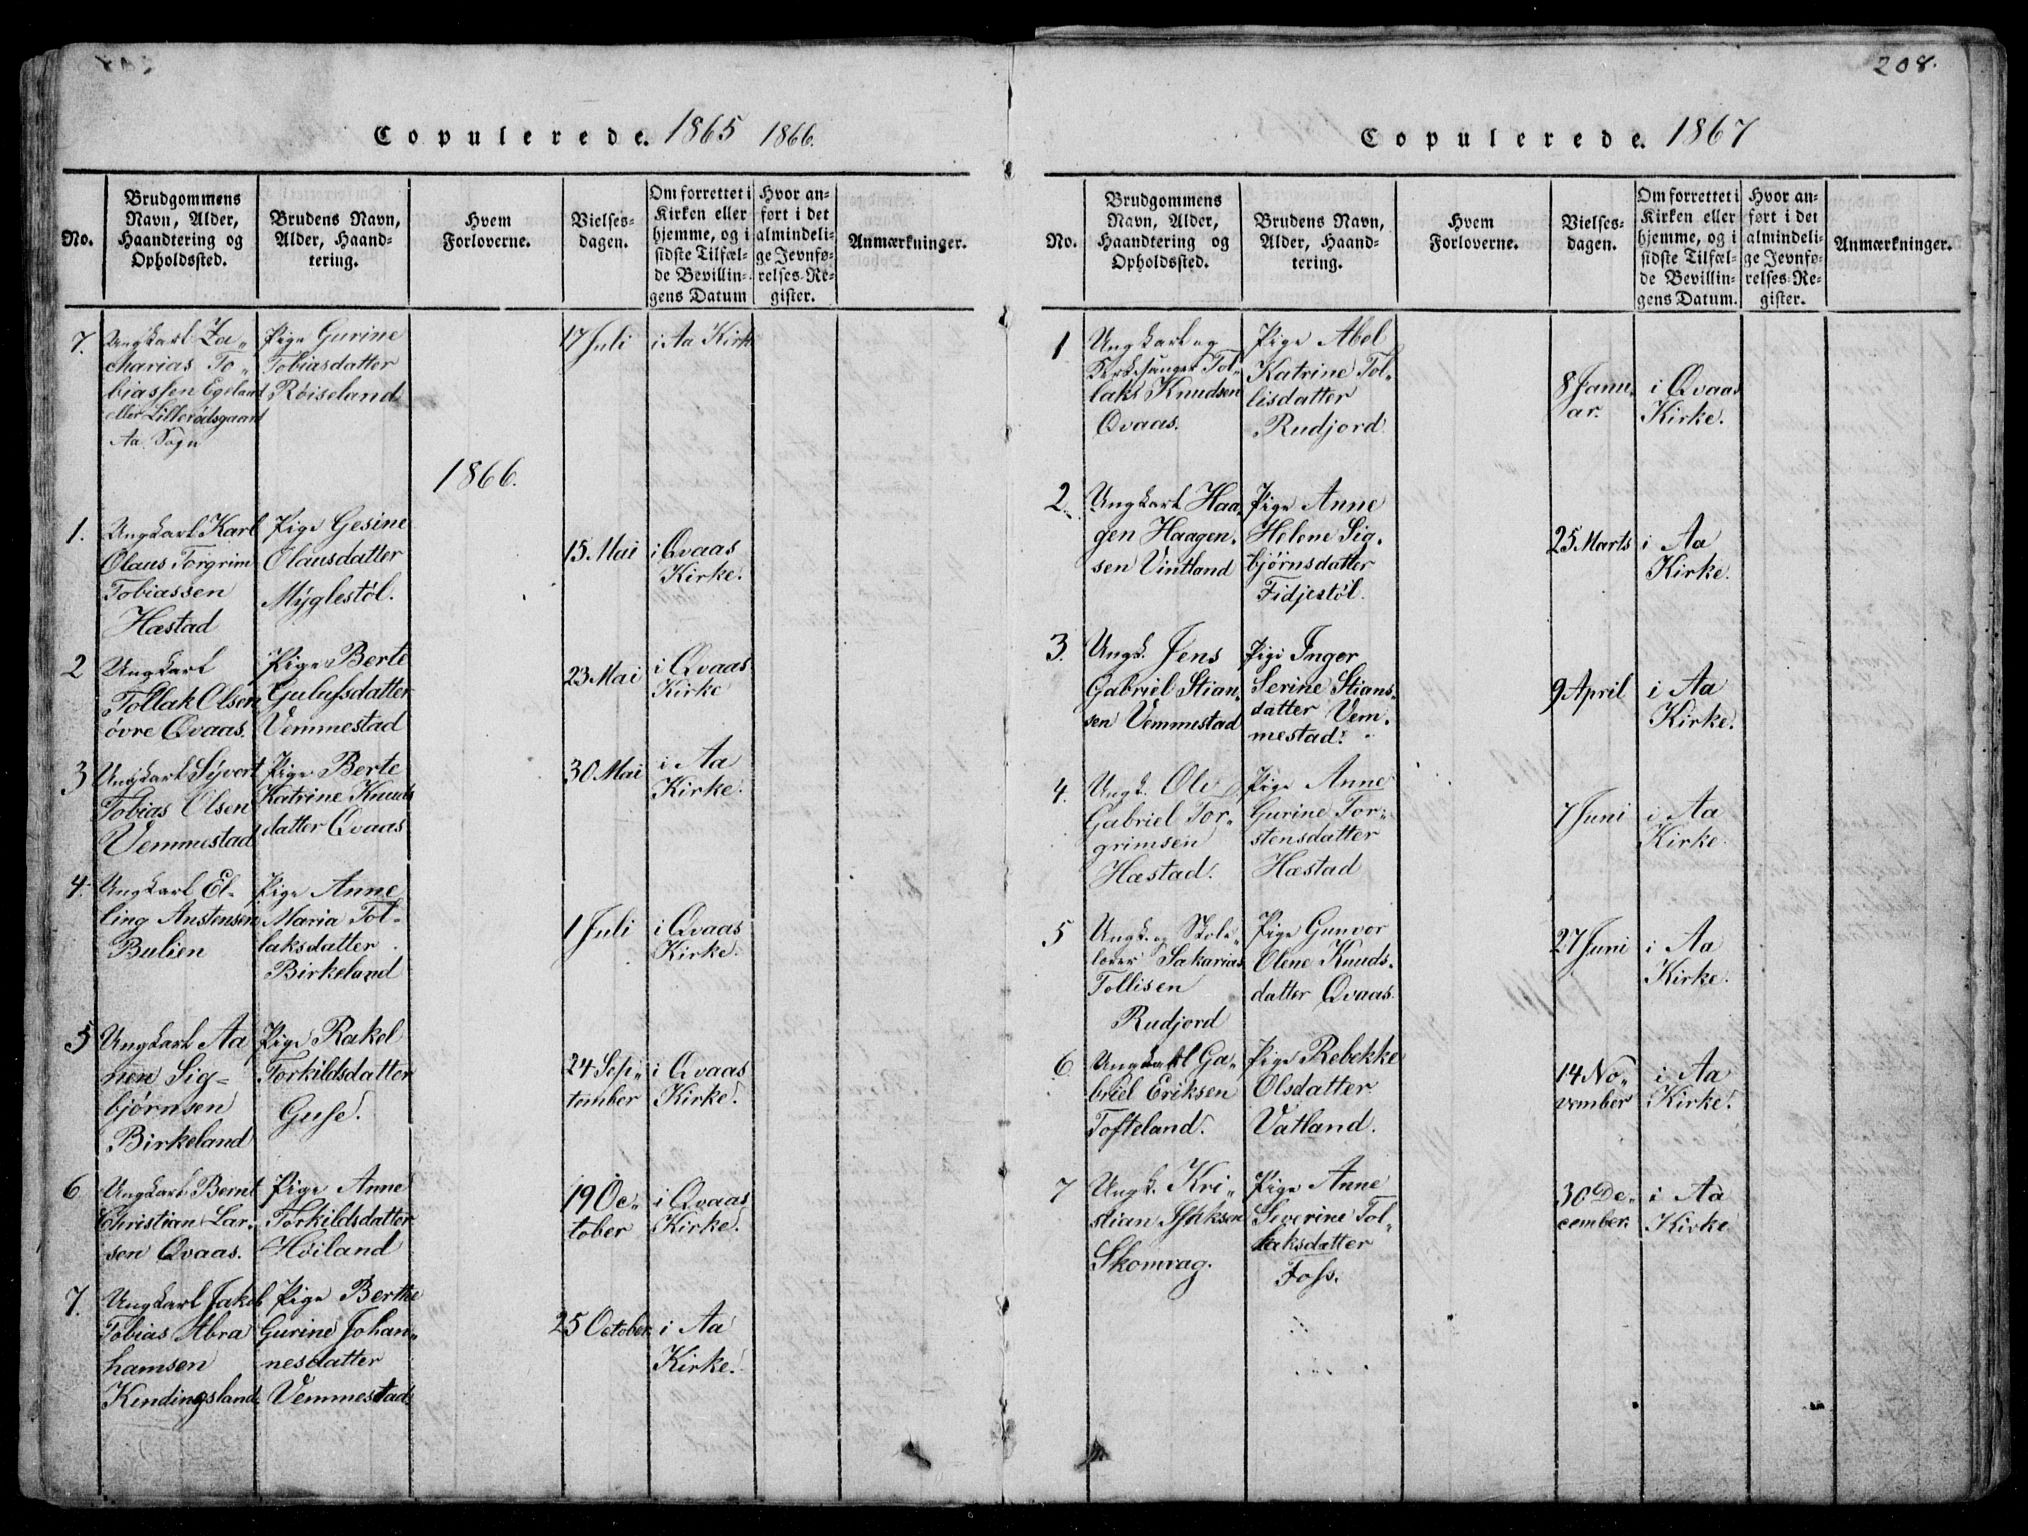 208.
Copulerede. 1865 1866.
No.
Brudgommens
Navn, Alder,
Haandtering og
Opholdssted.
Brudens Navn,
Alder, Haand-
tering.
Hvem
Forloverne.
Vielses-
dagen.
Om forrettet i
Kirken eller
hjemme, og i
sidste Tilfæl-
de Bevillin-
gens Datum
Hvor an-
ført i det
almindeli-
ge Jevnfø-
relses-Re-
gister.
Anmærkninger.
7.
Ungkarl Za-
charias To-
biassen Egeland
eller Lillerødsgaard
Aa Sogn
Pige Gurine
Tobiasdatter
Røiseland
17 Juli
i Aa Kirk
1866.
1.
Ungkarl Karl
Olaus Torgrim
Tobiassen
Hæstad
Pige Gesine
Olausdatter
Myglestøl.
15. Mai
i Qvaas
Kirke.
2
Ungkarl
Tollak Olsen
øvre Qvaas.
Pige Berte
Gulufsdatter
Vemmestad
23 Mai
i Qvaas
Kirke
3
Ungkarl Syvert
Tobias Olsen
Vemmestad
Pige Berte
Katrine Knuds
datter Qvaas
30 Mai
i Aa
Kirke.
4.
Ungkarl El-
ling Anstensen
Bulien
Pige Anne
Maria Tol-
laksdatter
Birkeland
1 Juli
i Qvaas
Kirke.
5
Ungkarl Aa
nen Sig-
bjørnsen
Birkeland
Pige Rakel
Torkildsdatter
Guse.
24 Sep-
tember
i Qvaas
Kirke.
6
Ungkarl Bernt
Christian Lar-
sen Qvaas.
Pige Anne
Torkildsdatter
Høiland
19 Oc-
tober
i Qvaas
Kirke.
7.
Ungkarl Jakob
Tobias Abra
hamsen
Kindingsland.
Pige Berthe
Gurine Johan-
nesdatter
Vemmestad.
25 October
i Aa
Kirke.
Copulerede. 1867
No.
Brudgommens
Navn, Alder,
Haandtering og
Opholdssted.
Brudens Navn,
Alder, Haand-
tering.
Hvem
Forloverne.
Vielses-
dagen.
Om forrettet i
Kirken eller
hjemme, og i
sidste Tilfæl-
de Bevillin-
gens Datum.
Hvor an-
ført i det
almindeli-
ge Jevnfø-
relses-Re-
gister.
Anmærkninger.
1
Ungkarl og
Kirkesanger Tol-
laks Knudsen
Qvaas.
Pige Abel
Katrine Tol-
lisdatter
Rudjord
8 Janu-
ar.
i Qvaas
Kirke.
2.
Ungkarl Haa-
gen Haagen-
sen Vintland
Pige Anne
Helene Sig-
bjørnsdatter
Fidjestøl.
25 Marts
i Aa
Kirke.
3.
Ungk. Jens
Gabriel Stian-
sen Vemmestad
Pige Inger
Serine Stians-
datter Vem-
mestad.
9 April
i Aa
Kirke.
4.
Ungk. Ole
Gabriel Tor-
grimsen
Hæstad.
Pige Anne
Gurine Tor-
stensdatter
Hæstad
7 Juni
i Aa
Kirke.
5
Ungk. og Skole-
lærer Sakarias
Tollisen
Rudjord
Pige Gunvor
Olene Knuds-
datter Qvaas.
27 Juni
i Aa
Kirke.
6
Ungkarl Ga-
briel Eriksen
Tofteland.
Pige Rebekke
Olsdatter
Vatland.
14 No-
vember
i Aa
Kirke.
7
Ungk. Kri-
stian
Skomrag.
Pige Anne
Severine Tol-
laksdatter
Foss.
30 De-
cember.
i Aa
Kirke